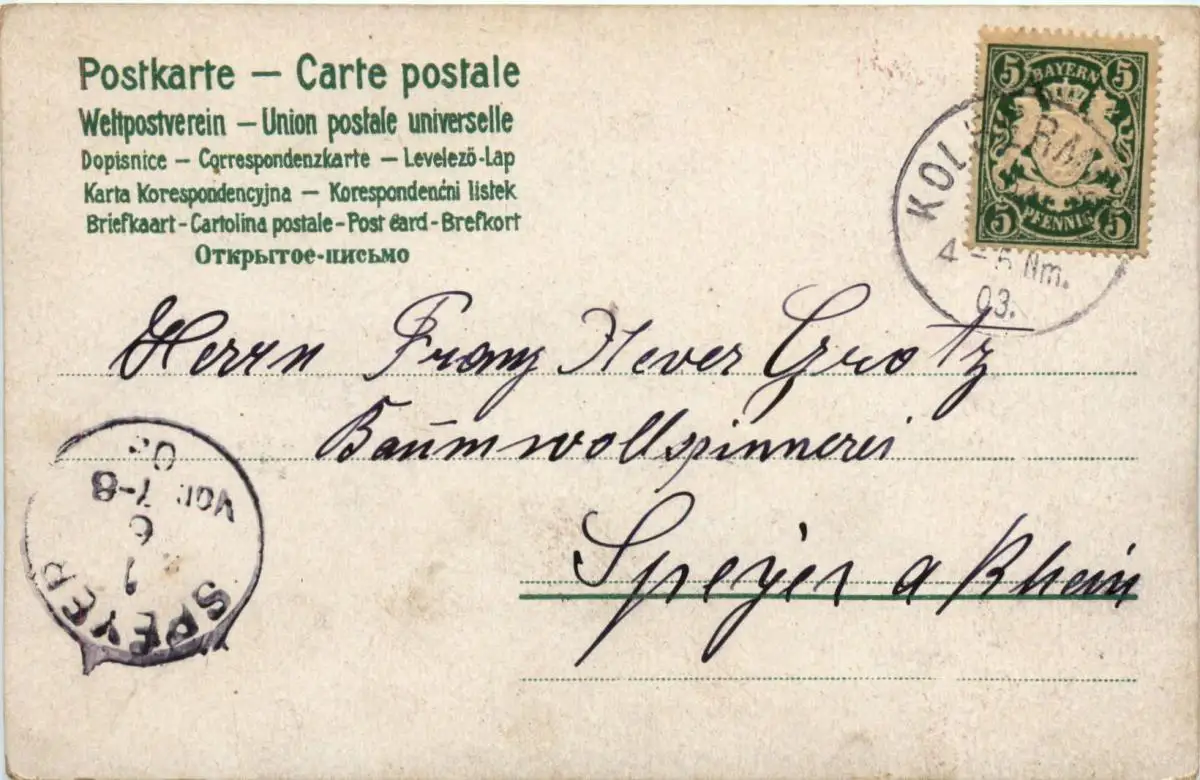 Postkarte — Carte postale
Weltpostverein — Union postale universelle
Dopisnice — Correspondenzkarte — Levelező-Lap
Karta Korespondencyjna — Korespondenčni listek
Briefkaart - Cartolina postale - Post card - Brefkort
Открытое-письмо
5 BAYERN 5
5 PFENNIG 5
KOLBERM
4-5 Nm.
03.
Herrn Franz Xever Grotz
Baumwollspinnerei
Speyer a Rhein
SPEYER
9
VOR 7-8